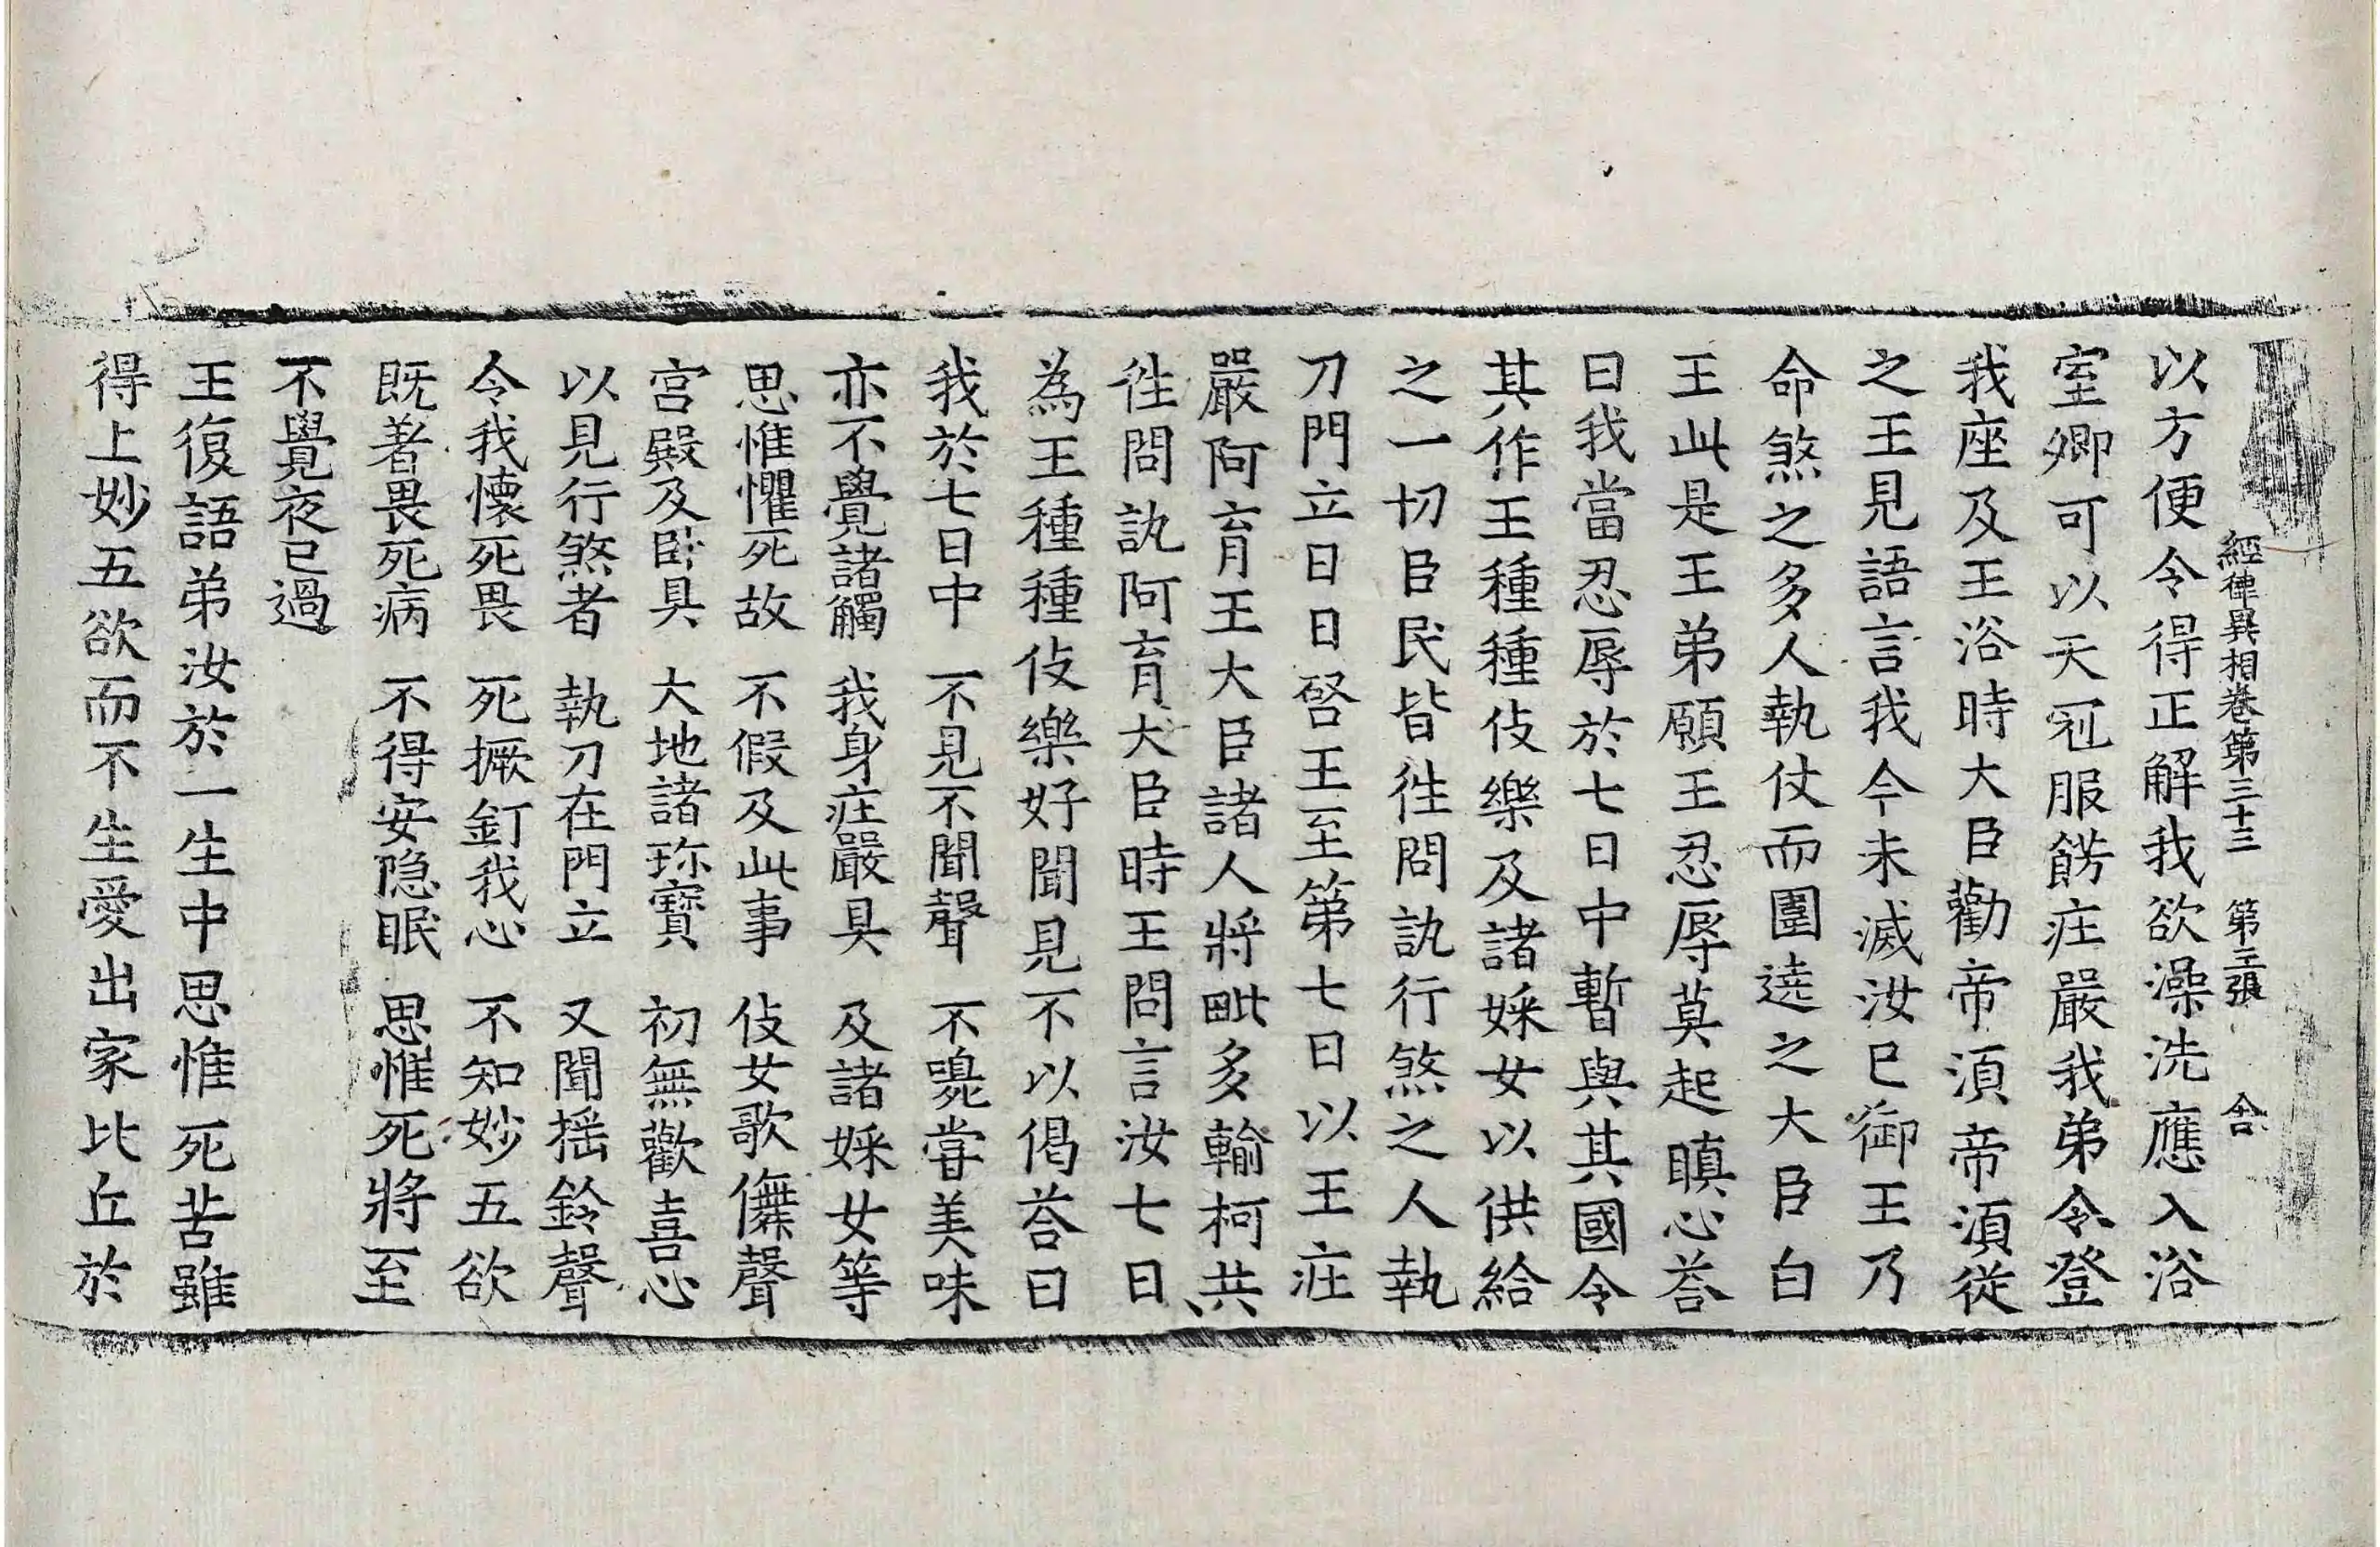 經律異相卷第三十三　第三張　舍
以方便令得正解我欲澡洗應入浴
室卿可以天冠服餝庄嚴我弟令登
我座及王浴時大臣勸帝湏帝湏從
之王見語言我今未滅汝已御王乃
命煞之多人執仗而圍遶之大臣白
王此是王弟願王忍辱莫起瞋心荅
曰我當忍辱於七日中暫與其國令
其作王種種伎樂及諸婇女以供給
之一切臣民皆徃問訊行煞之人執
刀門立日日啓王至第七日以王庄
嚴阿育王大臣諸人將毗多輸柯共
徃問訊阿育大臣時王問言汝七日
為王種種伎樂好聞見不以偈荅曰
我於七日中　不見不聞聲　不嗅甞美味
亦不覺諸觸　我身庄嚴具　及諸婇女等
思惟懼死故　不假及此事　伎女歌儛聲
宮殿及卧具　大地諸珎寶　初無歡喜心
以見行煞者　執刀在門立　又聞揺鈴聲
令我懷死畏　死橛釘我心　不知妙五欲
既著畏死病　不得安隠眠　思惟死將至
不覺夜已過
王復語弟汝於一生中思惟死苦雖
得上妙五欲而不生愛出家比丘於